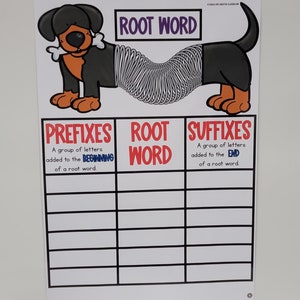 ROOT WORD
PREFIXES
A group of letters
added to the BEGINNING
of a root word.
ROOT
WORD
SUFFIXES
A group of letters
added to the END
of a root word.